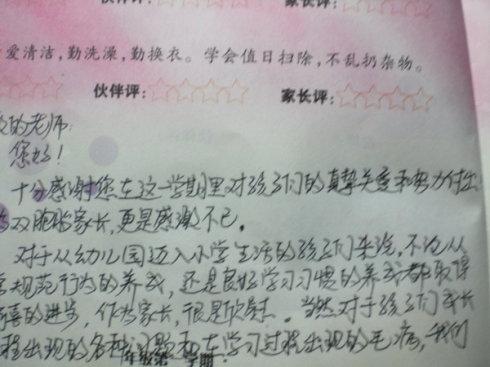 伙伴评: 家长评:
爱清洁,勤洗澡,勤换衣。学会值日扫除,不乱扔杂物。
伙伴评: 家长评:
的老师:
您好!
十分感谢您在这一学期里对孩子们的真挚关爱和努力付出
双胞胎家长,更是感激不已。
对于从幼儿园迈入小学生活的孩子们来说,不论从
规范行为的养成,还是良好学习习惯的养成都取得
喜的进步,作为家长,很是欣慰。当然对于孩子们成长
程出现的各种问题和在学习过程出现的毛病,我们
年级第 学期